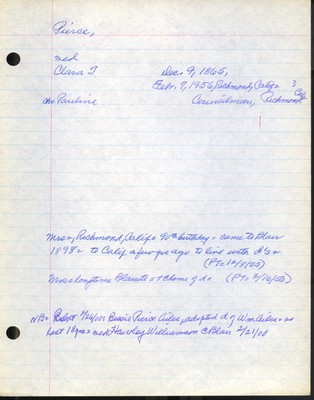 Pierce,
md
Clara T Dec. 9, 1865,
Febr. 7, 1956, Richmond, Calif=
ch: Pauline Councilman, Richmond Cal
Mrs=, Richmond, Calif= 90th birthday= came to Blair
1898= to Calif a few yrs ago to live with d's=
(PT= 12/8/55)
Mrs= longtime Blairite= at home of d= (PT= 2/16/56)
NB= Bessie Pierce Aulee, adopted d of Wm
last 18 yrs= md Hawley Williamson C Blair 2/21/00